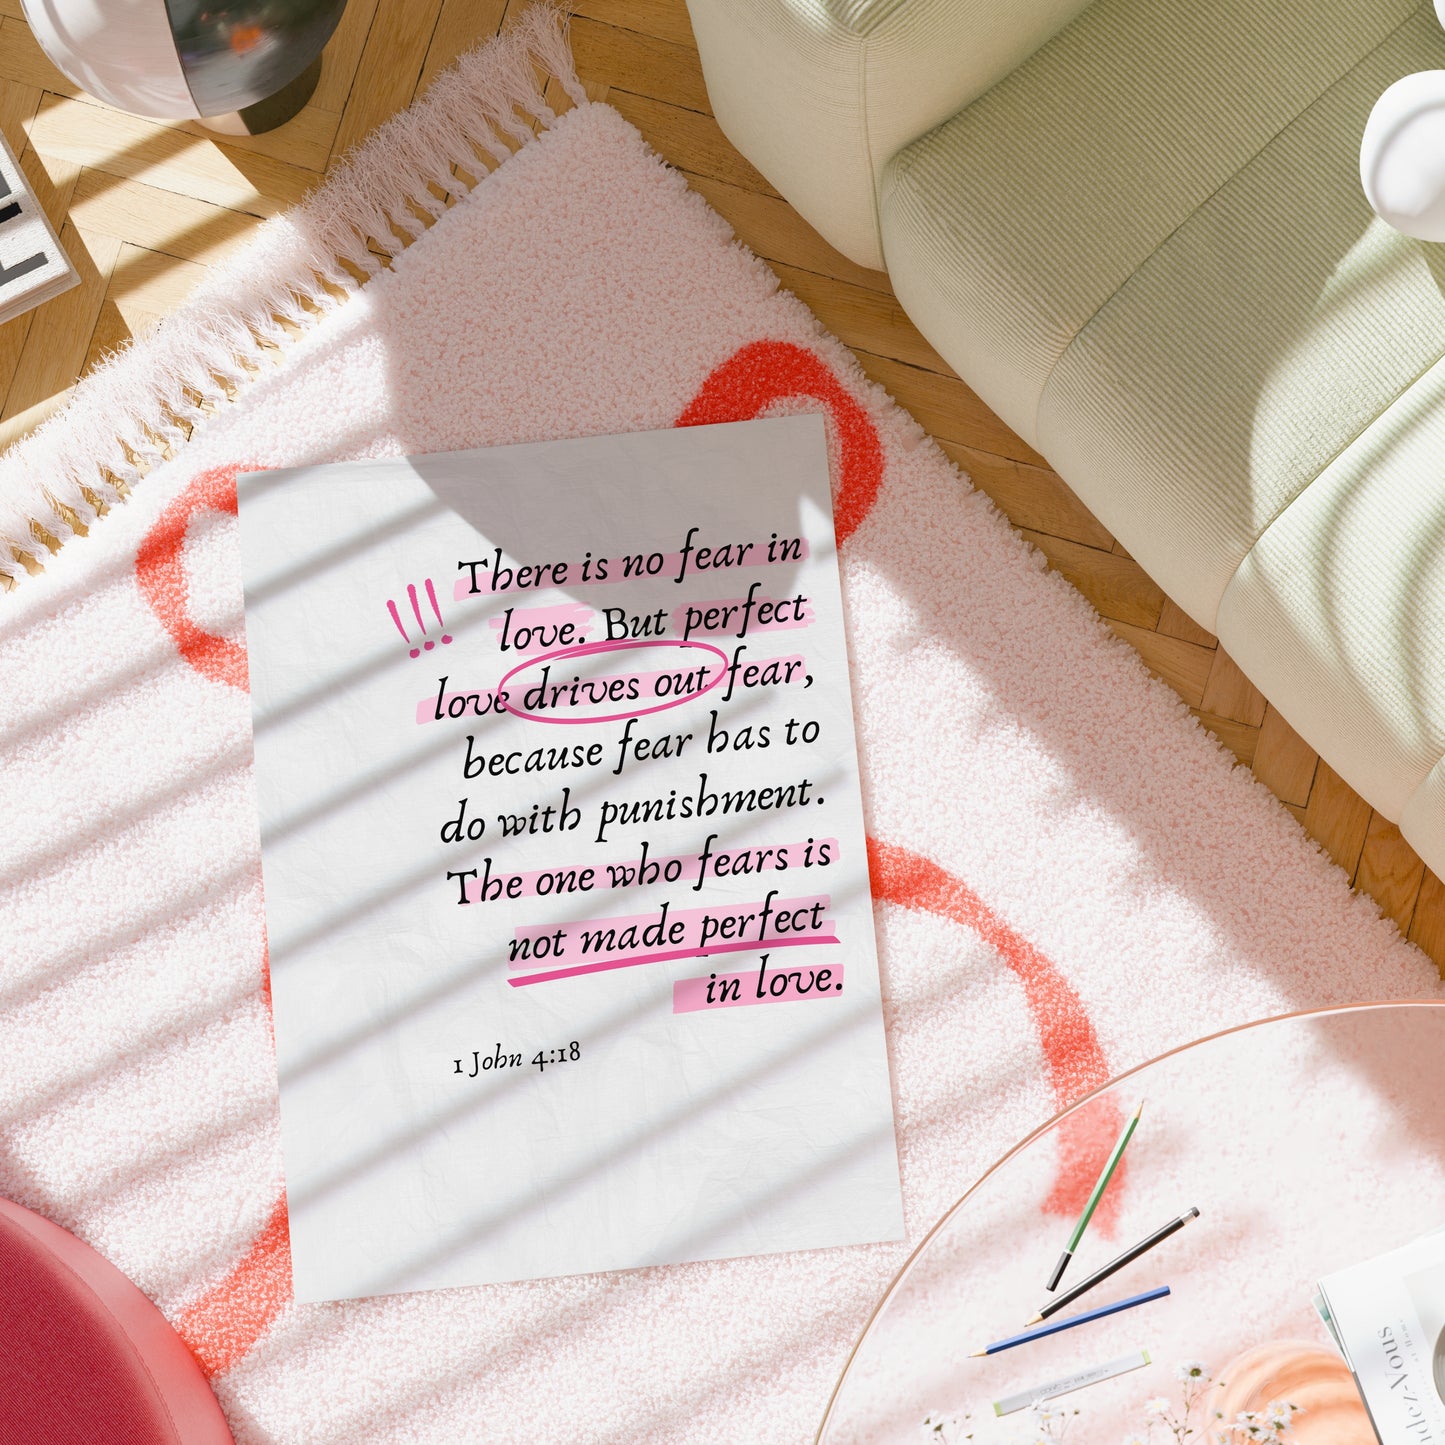 !!!
There is no fear in
love. But perfect
love drives out fear,
because fear has to
do with punishment.
The one who fears is
not made perfect
in love.
1 John 4:18